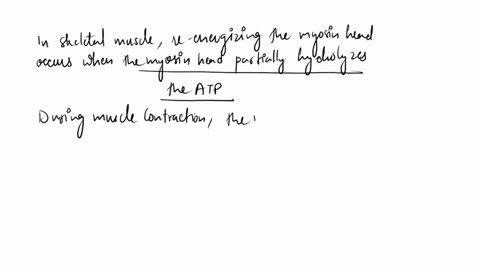 In skeletal muscle, re-energizing the myosin head
occurs when the myosin head partially hydrolyzes
the ATP
During muscle contraction, the